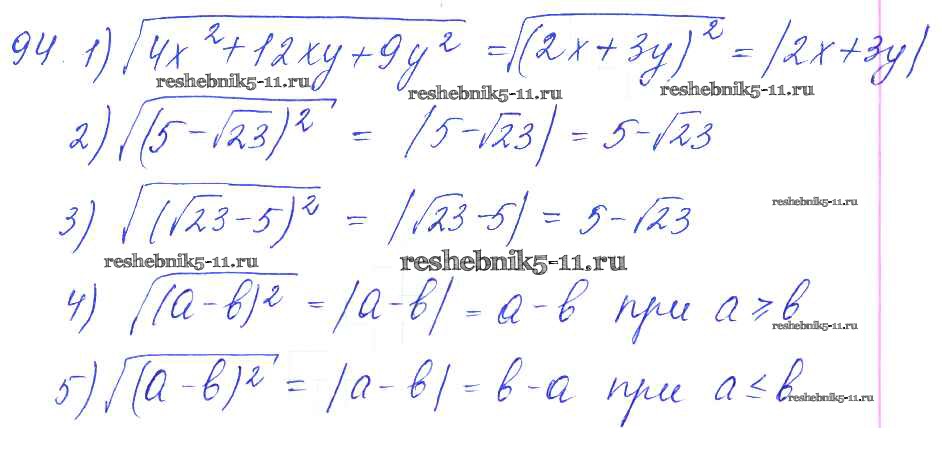 94. 1) √(4x² + 12xy + 9y²) = √((2x + 3y)²) = |2x + 3y|
reshebnik5-11.ru reshebnik5-11.ru reshebnik5-11.ru
2) √((5 - √23)²) = |5 - √23| = 5 - √23
3) √((√23 - 5)²) = |√23 - 5| = 5 - √23
reshebnik5-11.ru
reshebnik5-11.ru reshebnik5-11.ru
4) √((a - b)²) = |a - b| = a - b при a ⩾ b
reshebnik5-11.ru
5) √((a - b)²) = |a - b| = b - a при a ≤ b
reshebnik5-11.ru